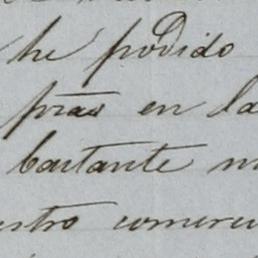 he podido
pras en la
bastante
estro comerci